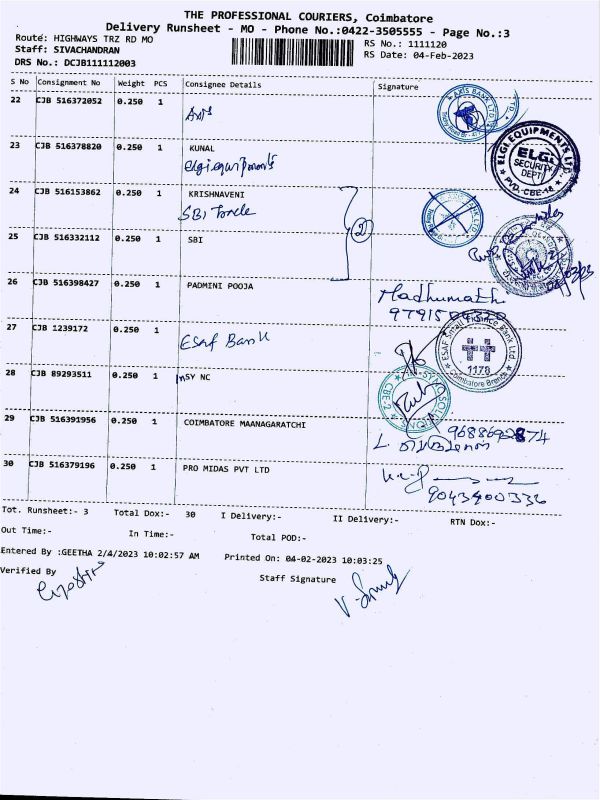 THE PROFESSIONAL COURIERS, Coimbatore
Delivery Runsheet - MO - Phone No.:0422-3505555 - Page No.:3
Route: HIGHWAYS TRZ RD MO
RS No.: 1111120
Staff: SIVACHANDRAN
RS Date: 04-Feb-2023
DRS No.: DCJB111112003
S No Consignment No Weight PCS Consignee Details Signature
22 CJB 516372052 0.250 1
Axis
AXIS BANK LTD
23 CJB 516378820 0.250 1 KUNAL
Elgi equipments
ELGI EQUIPMENTS LTD
ELGI
SECURITY
DEPT
PVD, CBE-18
24 CJB 516153862 0.250 1 KRISHNAVENI
SBI
2
25 CJB 516332112 0.250 1 SBI
26 CJB 516398427 0.250 1 PADMINI POOJA
Madhumathi
27 CJB 1239172 0.250 1
Esaf Bank
ESAF Small Finance Bank Ltd.
1170
Coimbatore Branch
28 CJB 89293511 0.250 1 INSY NC
CBE-2
29 CJB 516391956 0.250 1 COIMBATORE MAANAGARATCHI
30 CJB 516379196 0.250 1 PRO MIDAS PVT LTD
9043400336
Tot. Runsheet:- 3 Total Dox:- 30 I Delivery:- II Delivery:- RTN Dox:-
Out Time:- In Time:- Total POD:-
Entered By :GEETHA 2/4/2023 10:02:57 AM Printed On: 04-02-2023 10:03:25
Verified By Staff Signature